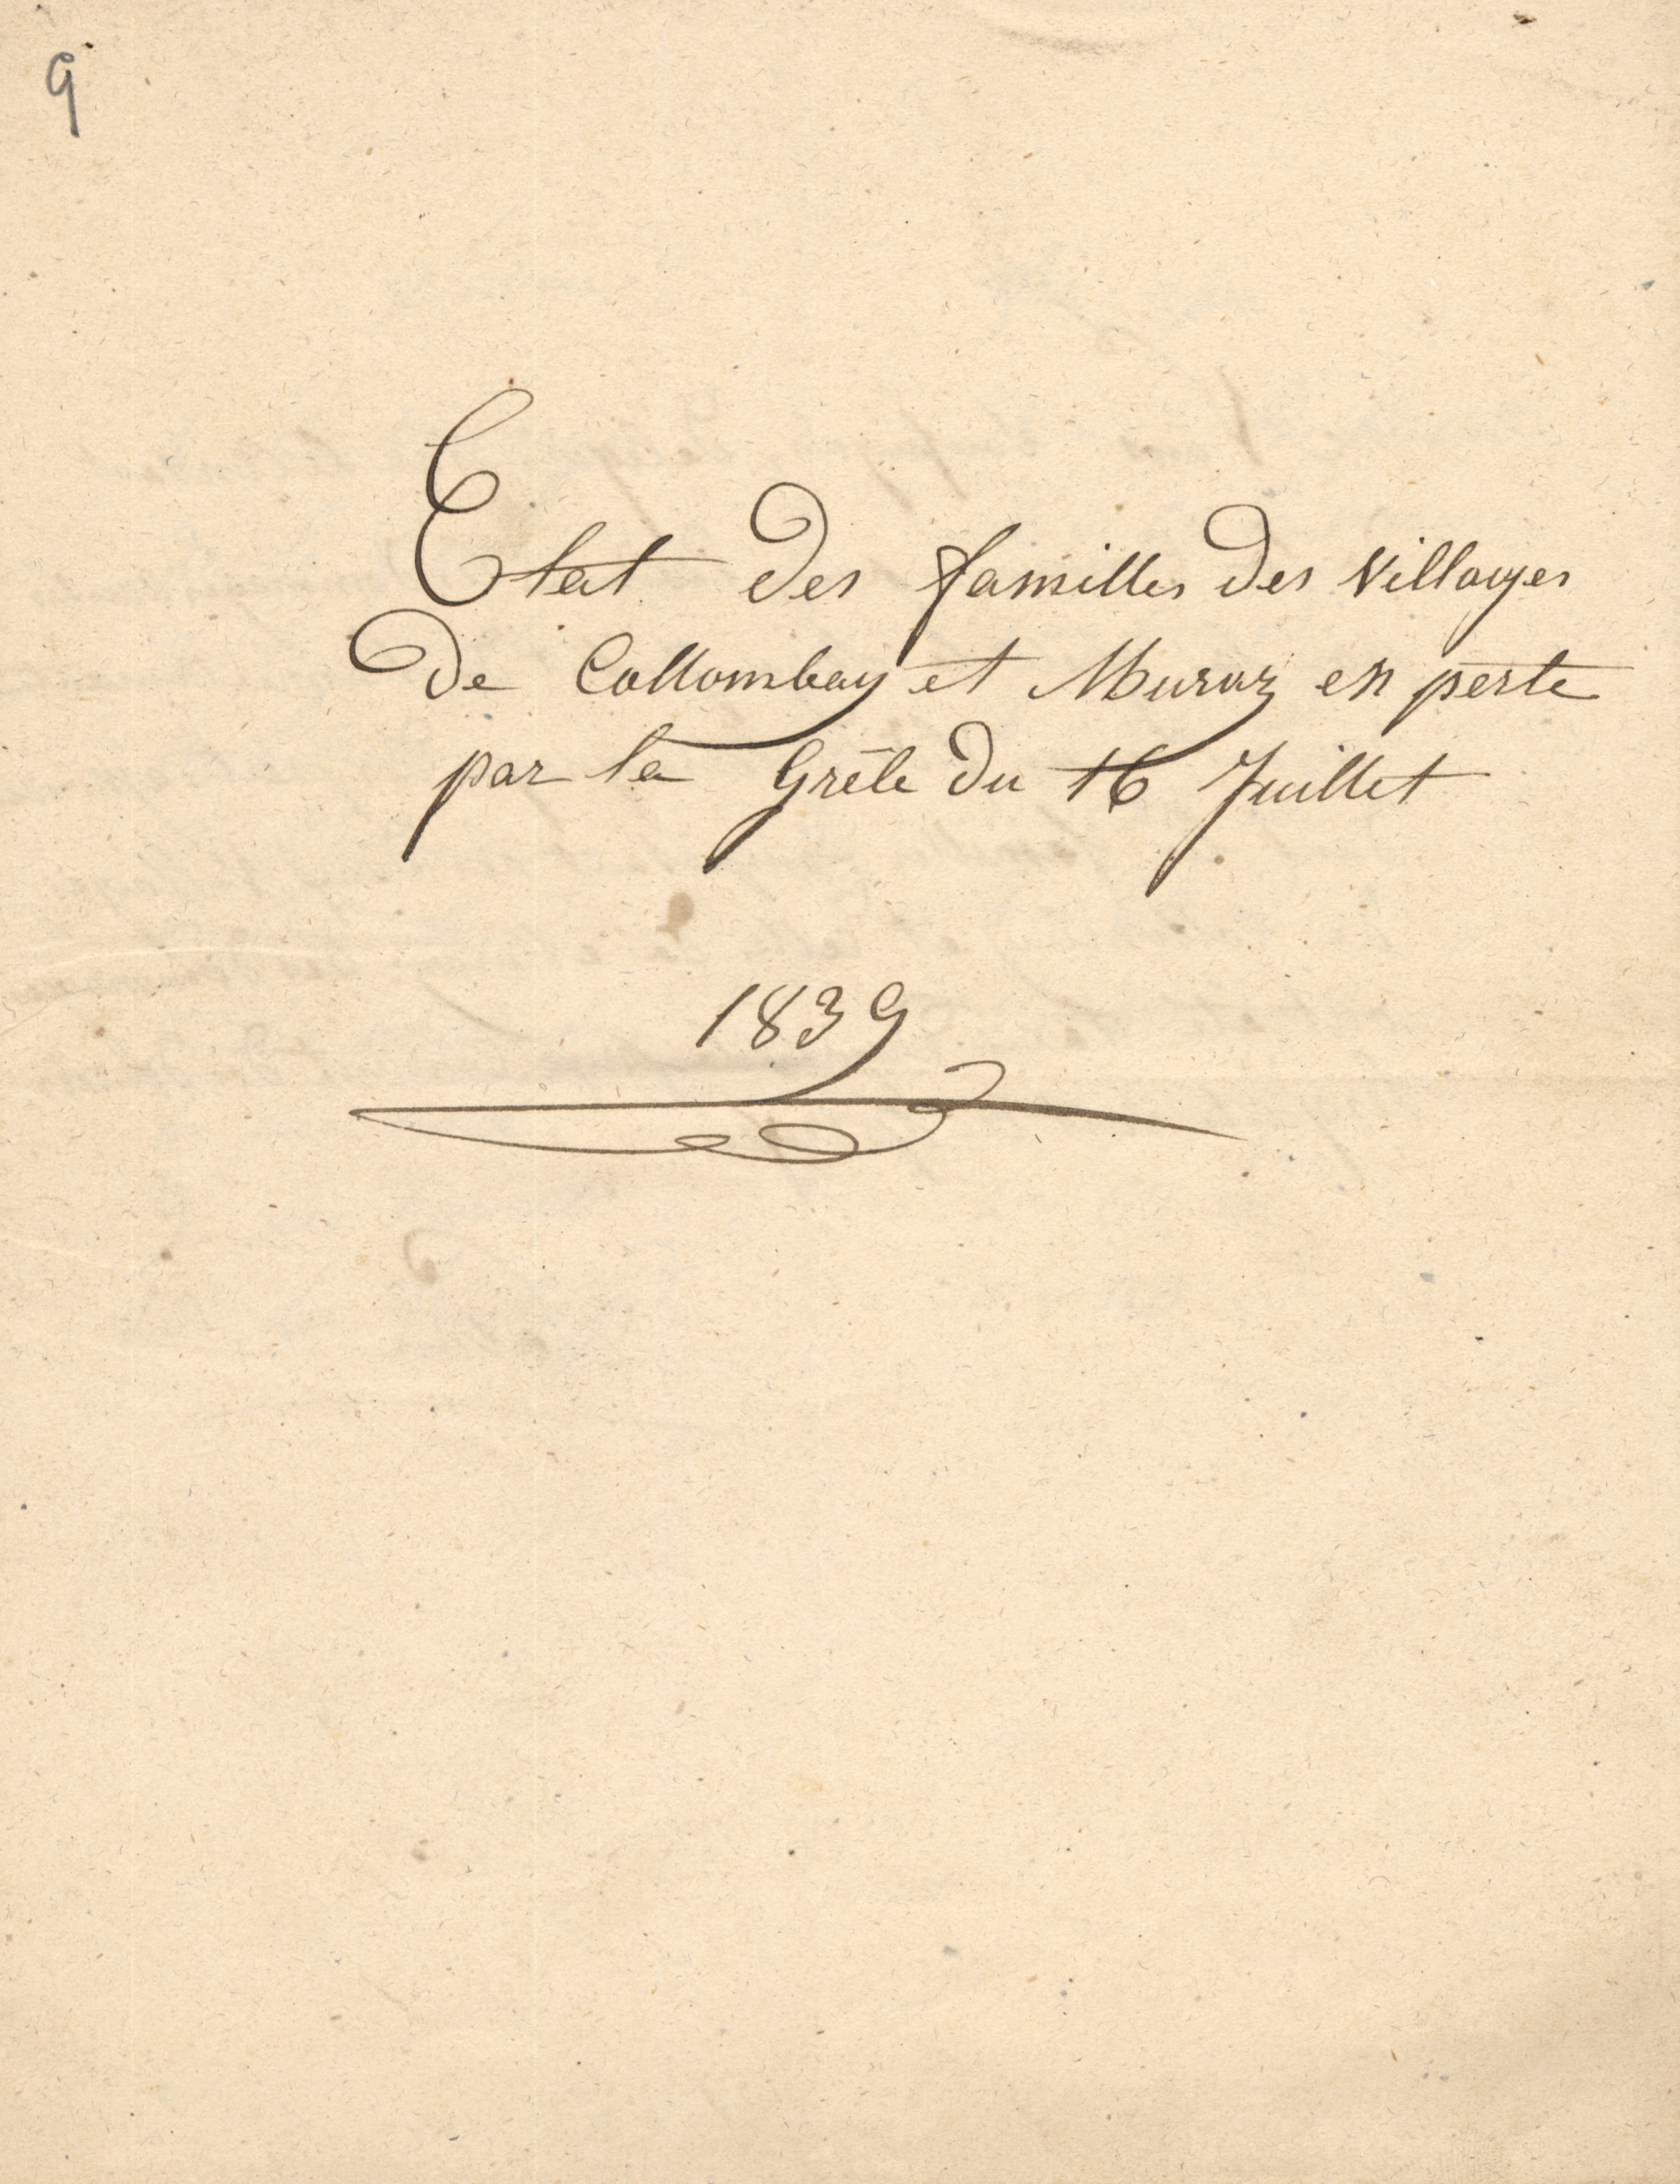 9
Etat des familles des Villages
de Collombay et Muraz en perte
par la Grêle du 16 Juillet
1839